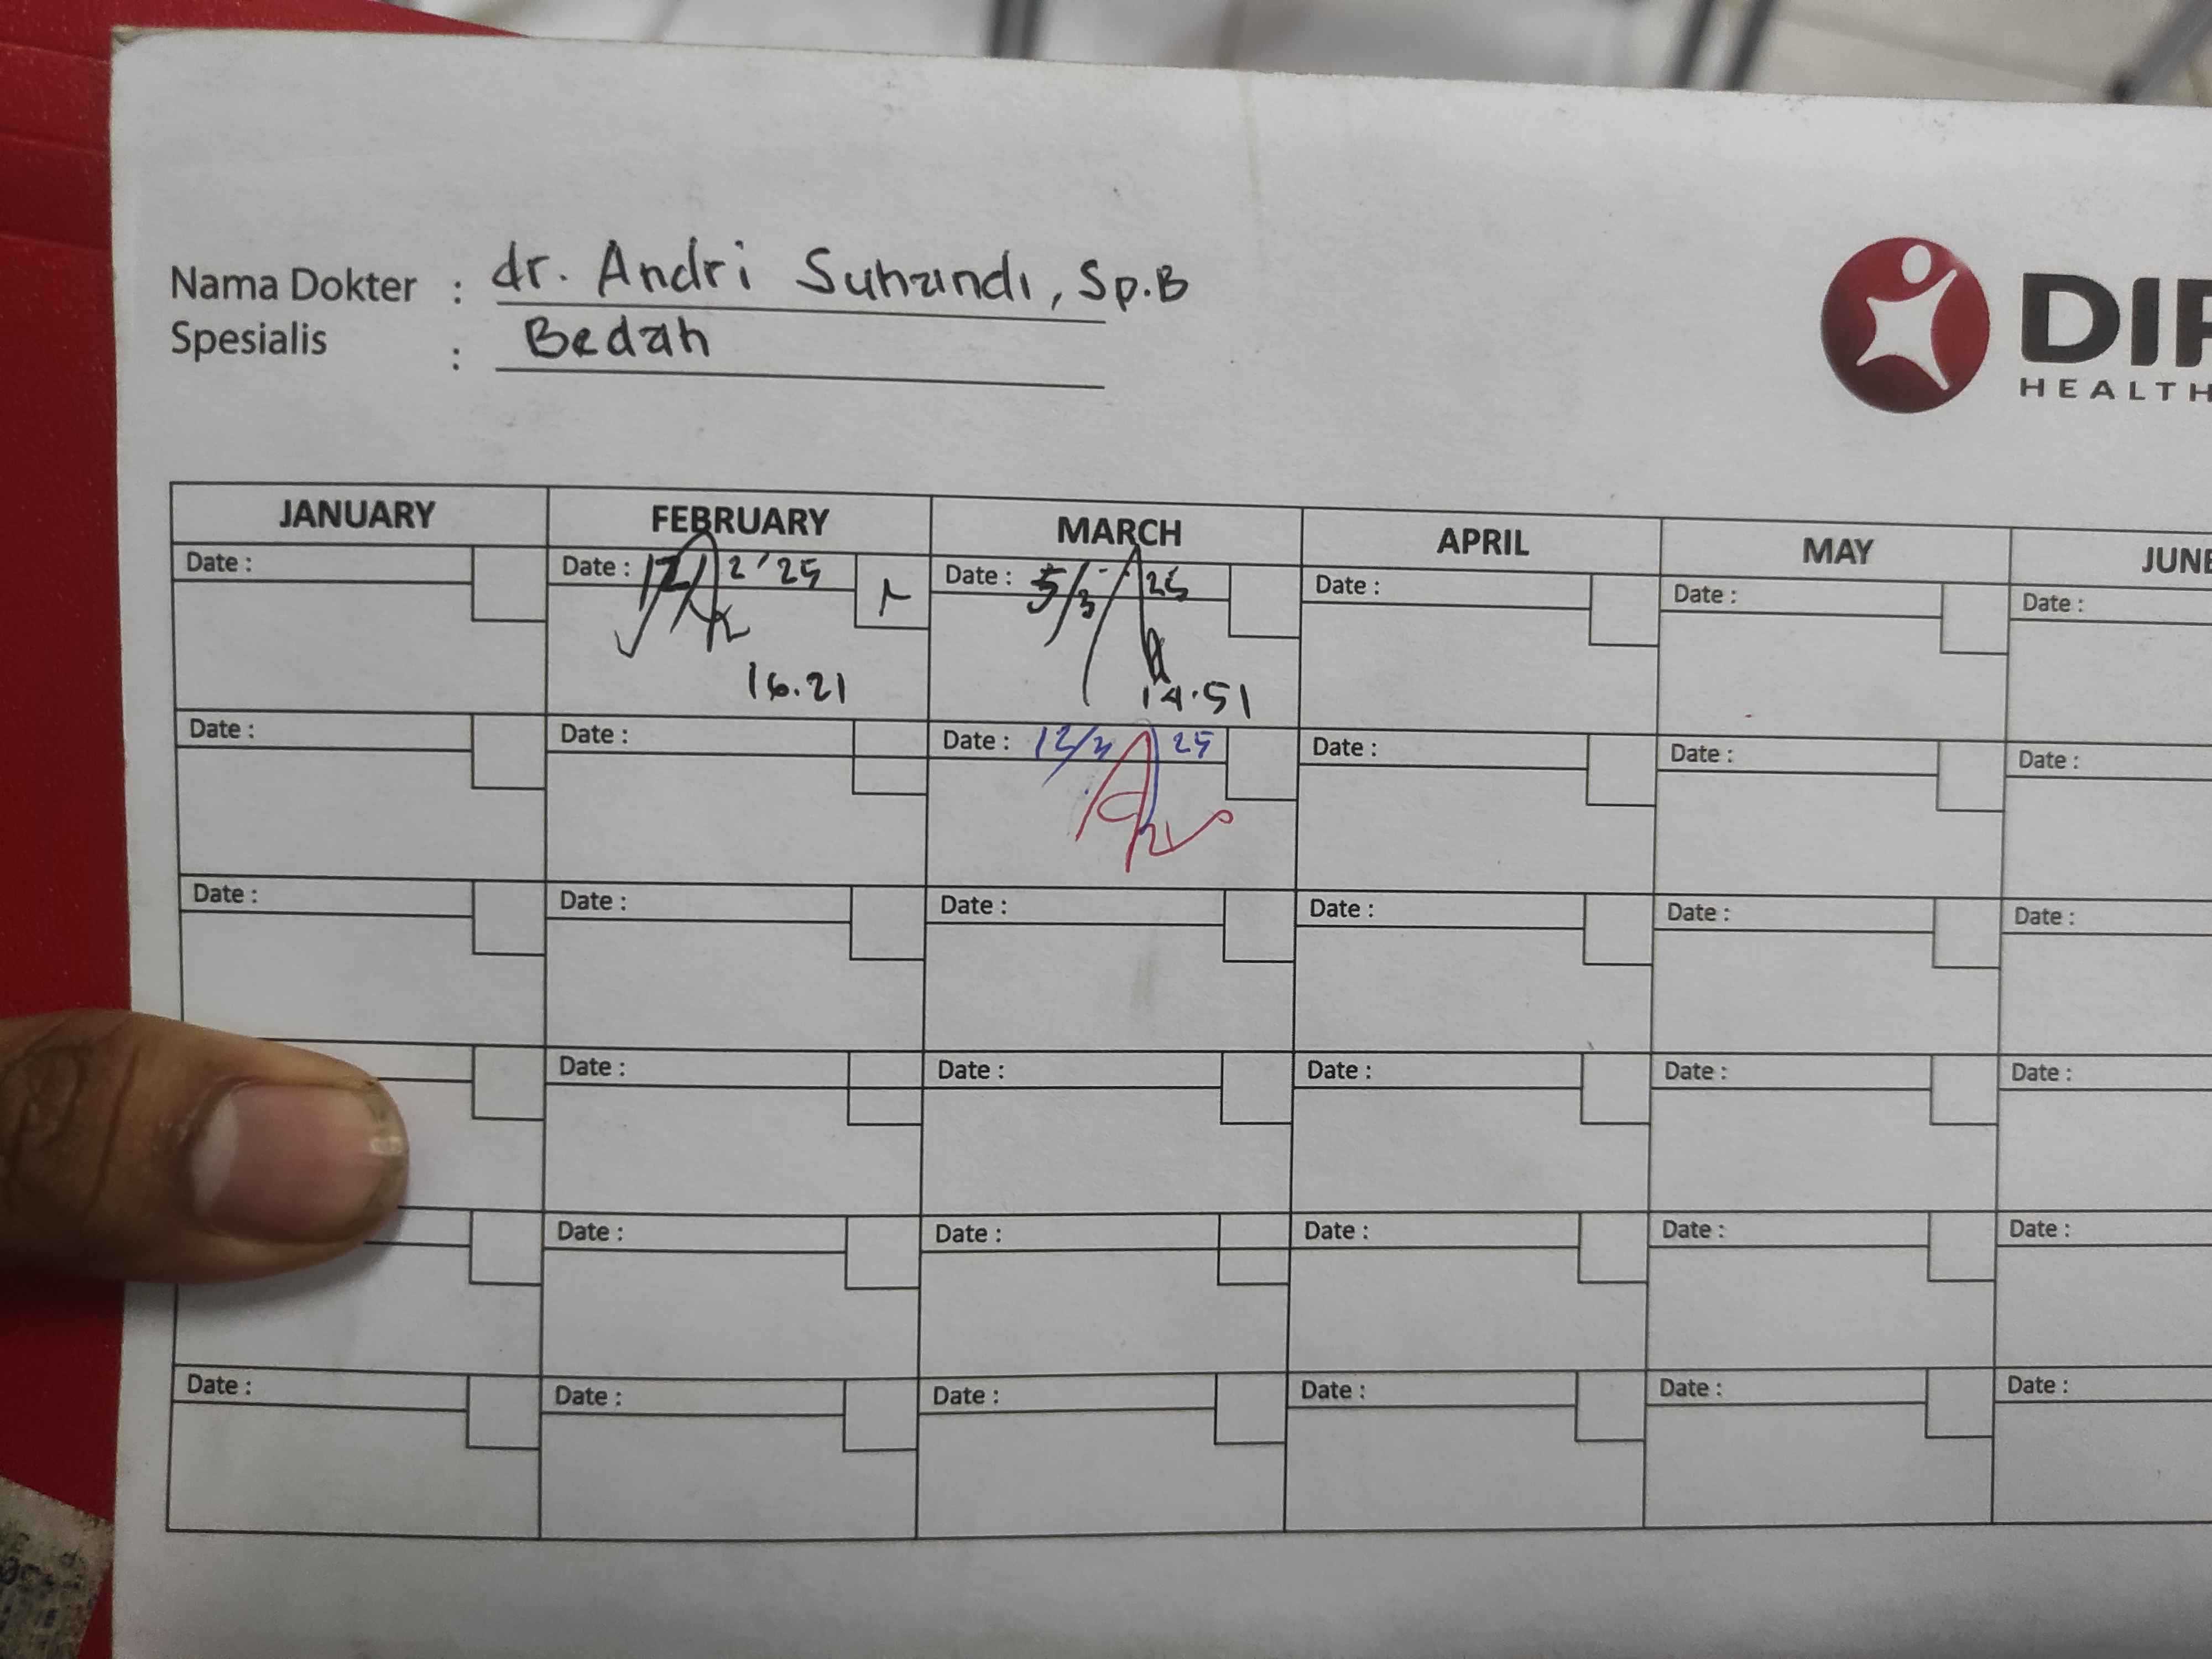 Nama Dokter : dr. Andri Suhandi, Sp.B
Spesialis : Bedah
DIP
HEALTH
JANUARY FEBRUARY MARCH APRIL MAY JUNE
Date : Date : 12/2'25 Date : 5/3/25 Date : Date : Date :
16.21 14.51
Date : Date : Date : 12/3 25 Date : Date : Date :
Date : Date : Date : Date : Date : Date :
Date : Date : Date : Date : Date :
Date : Date : Date : Date : Date :
Date : Date : Date : Date : Date : Date :